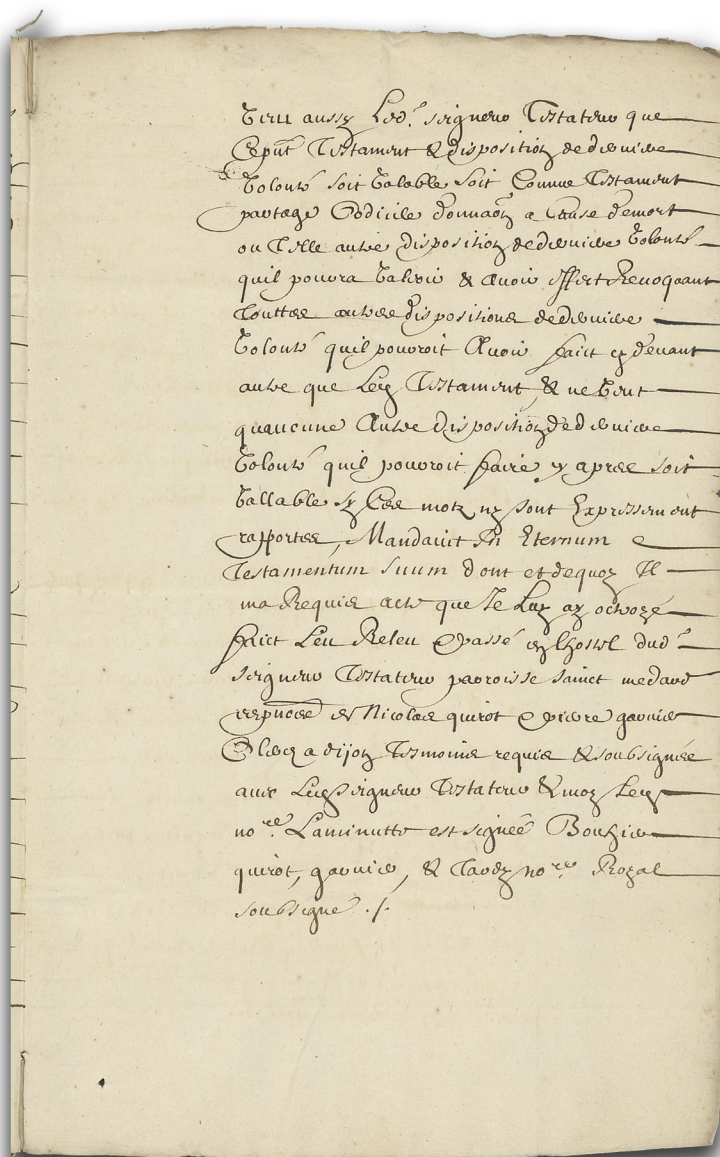 Veu aussy Led.t seigneur Testateur que
Ce pnt Testament & disposition de derniere
Volonté soit Valable soit Comme Testament
partage Codicile donnaon a Cause de mort
ou Telle autre disposition de derniere Volonté
quil pourra Valoir & Avoir effect Revoquant
Touttes autres dispositions de derniere
Volonté quil pourroit Avoir faict cy devant
autre que Ley Testament, & ne Veut
quaucune Autre disposition de derniere
Volonté quil pourroit faire cy apres soit
Vallable sy Ces motz ny sont Expressement
rapportes, Mandavit In Eternum
Testamentum Suum dont et de quoy Il
ma Requis acte que Je Luy ay octroyé
faict Leu Releu & passé en Lhostel dud.t
seigneur Testateur parroisse sainct medard
es pnces de Nicolas quirot & pierre garnier
Clercs a dijon Tesmoins requis & soubsignés
avec Led seigneur Testateur & moy Led
no.re Laminutte est signée Bouhier
quirot, garnier, & Tardy no.re Royal
soubsigné ./.